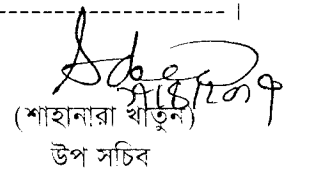 (শাহানারা খাতুন)
উপ সচিব